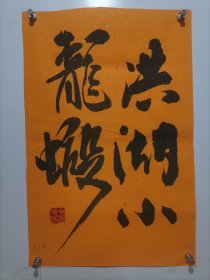 洪湖小
龍蝦